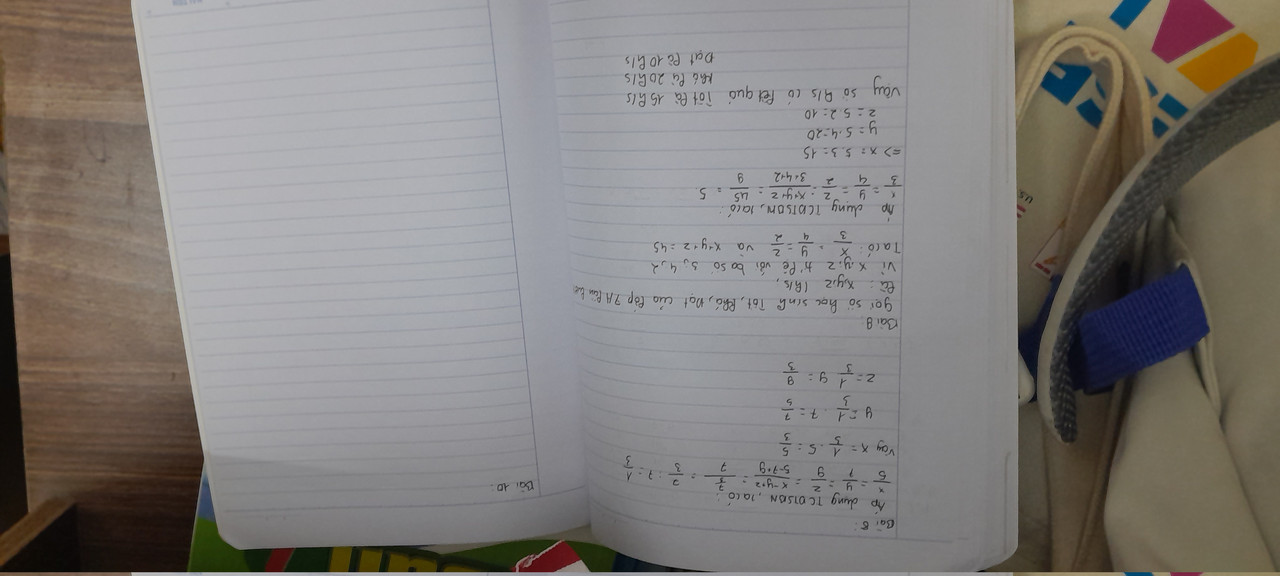 Bài 8:
Áp dụng TCDTSBN, ta có:
x/5 = y/7 = z/9 = x-y+z/5-7+9 = 7/3/7 = 7/3 : 7 = 1/3
Vậy x = 1/3 . 5 = 5/3
y = 1/3 . 7 = 7/5
z = 1/3 9 = 9/3
Bài 9:
gọi số học sinh Tốt, Khá, Đạt của lớp 7A lần lượt
là: x,y,z (h/s),
Vì x,y,z tỉ lệ với ba số 3, 4, 2
Ta có: x/3 = y/4 = z/2 và x+y+z = 45
Áp dụng TCDTSBN, ta có:
x/3 = y/4 = z/2 = x+y+z/3+4+2 = 45/9 = 5
=> x = 5.3 = 15
y = 5.4=20
z = 5.2=10
Vậy số h/s có kết quả Tốt là 15 h/s
Khá là 20 h/s
Đạt là 10 h/s
Bài 10: